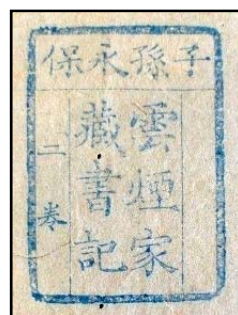 子孫永保
雲煙家
藏書記
二卷